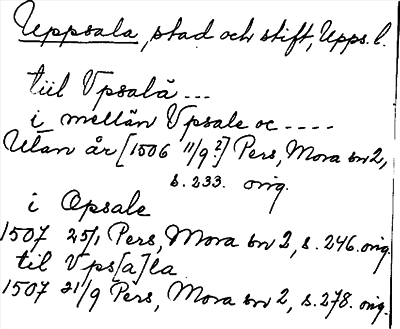 Uppsala, stad och stift, Upps. l.
till Vpsalā ...
i mellan Vpsale oc ----
Utan år [1506 11/9 ?] Pers, Mora sn 2,
s. 233. orig.
i Opsale
1507 25/1 Pers, Mora sn 2, s. 246. orig.
til Vps[a]la
1507 21/9 Pers, Mora sn 2, s. 278. orig.